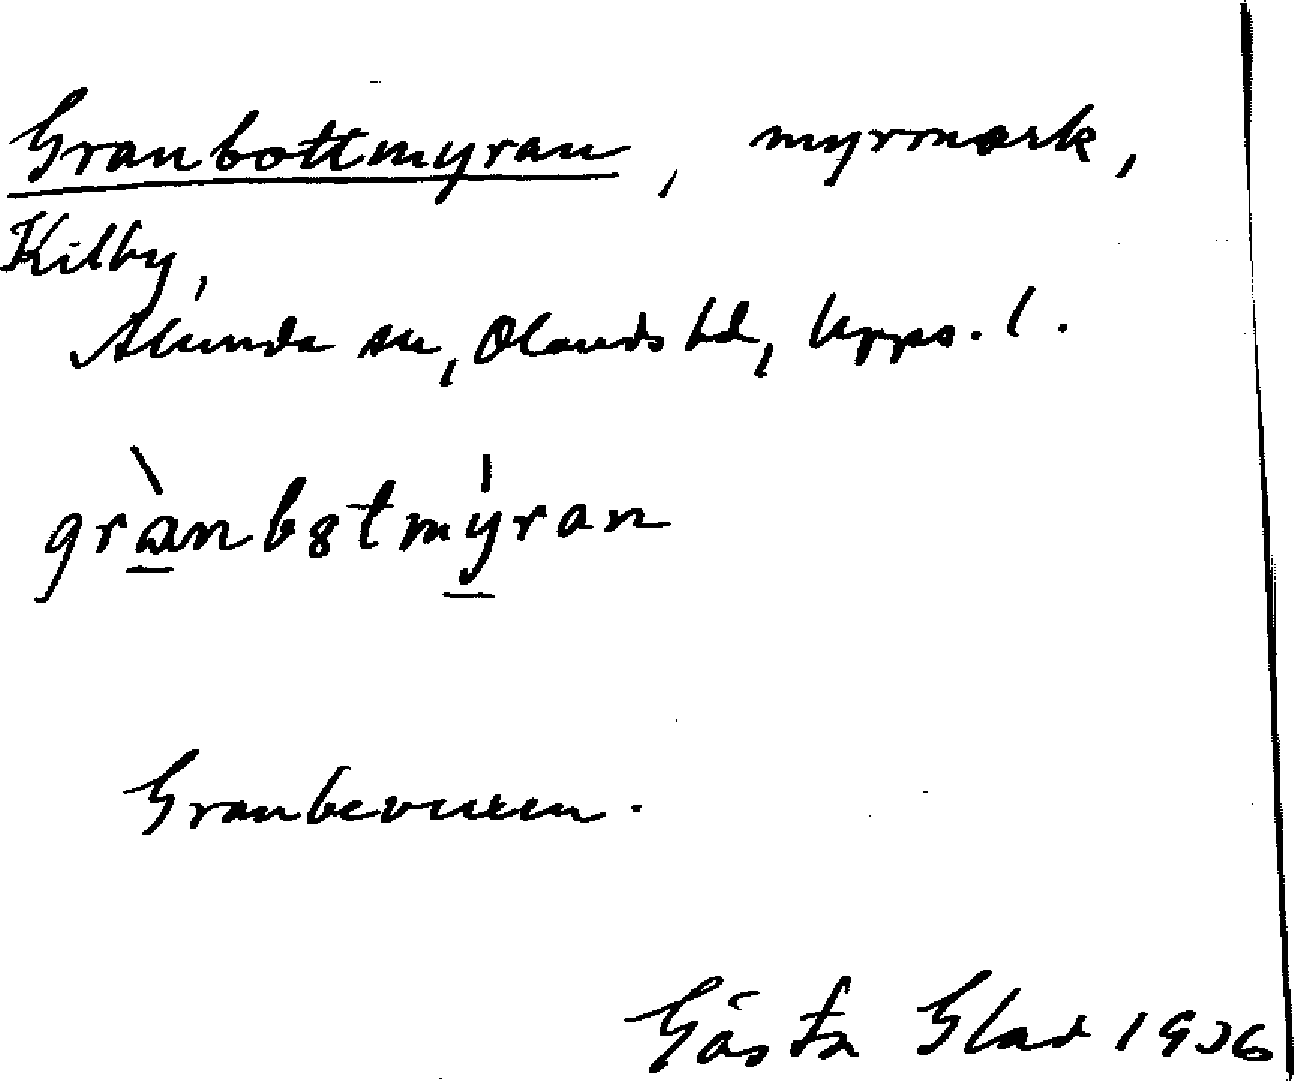 Granbottmyran, myrmark,
Kilby,
Alunda sn, Olands hd, Upps. l.
grànbɞtmýran
Granbevuxen.
Gösta Glad 1936